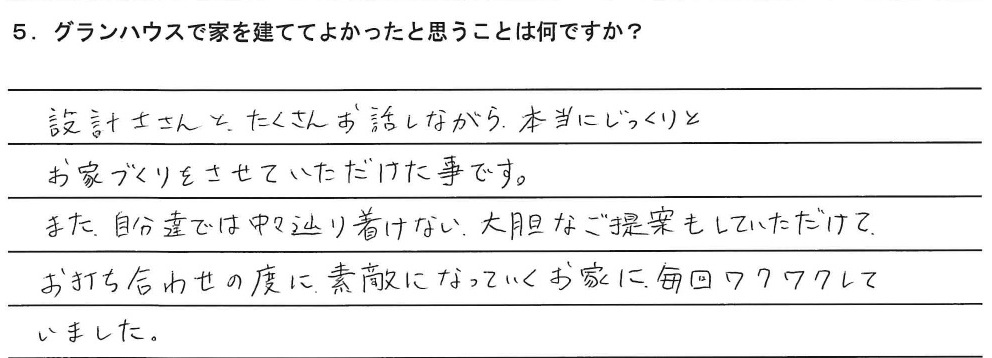 5. グランハウスで家を建ててよかったと思うことは何ですか？
設計士さんと、たくさんお話しながら、本当にじっくりと
お家づくりをさせていただけた事です。
また、自分達では中々辿り着けない、大胆なご提案もしていただけて、
お打ち合わせの度に、素敵になっていくお家に、毎回ワクワクして
いました。